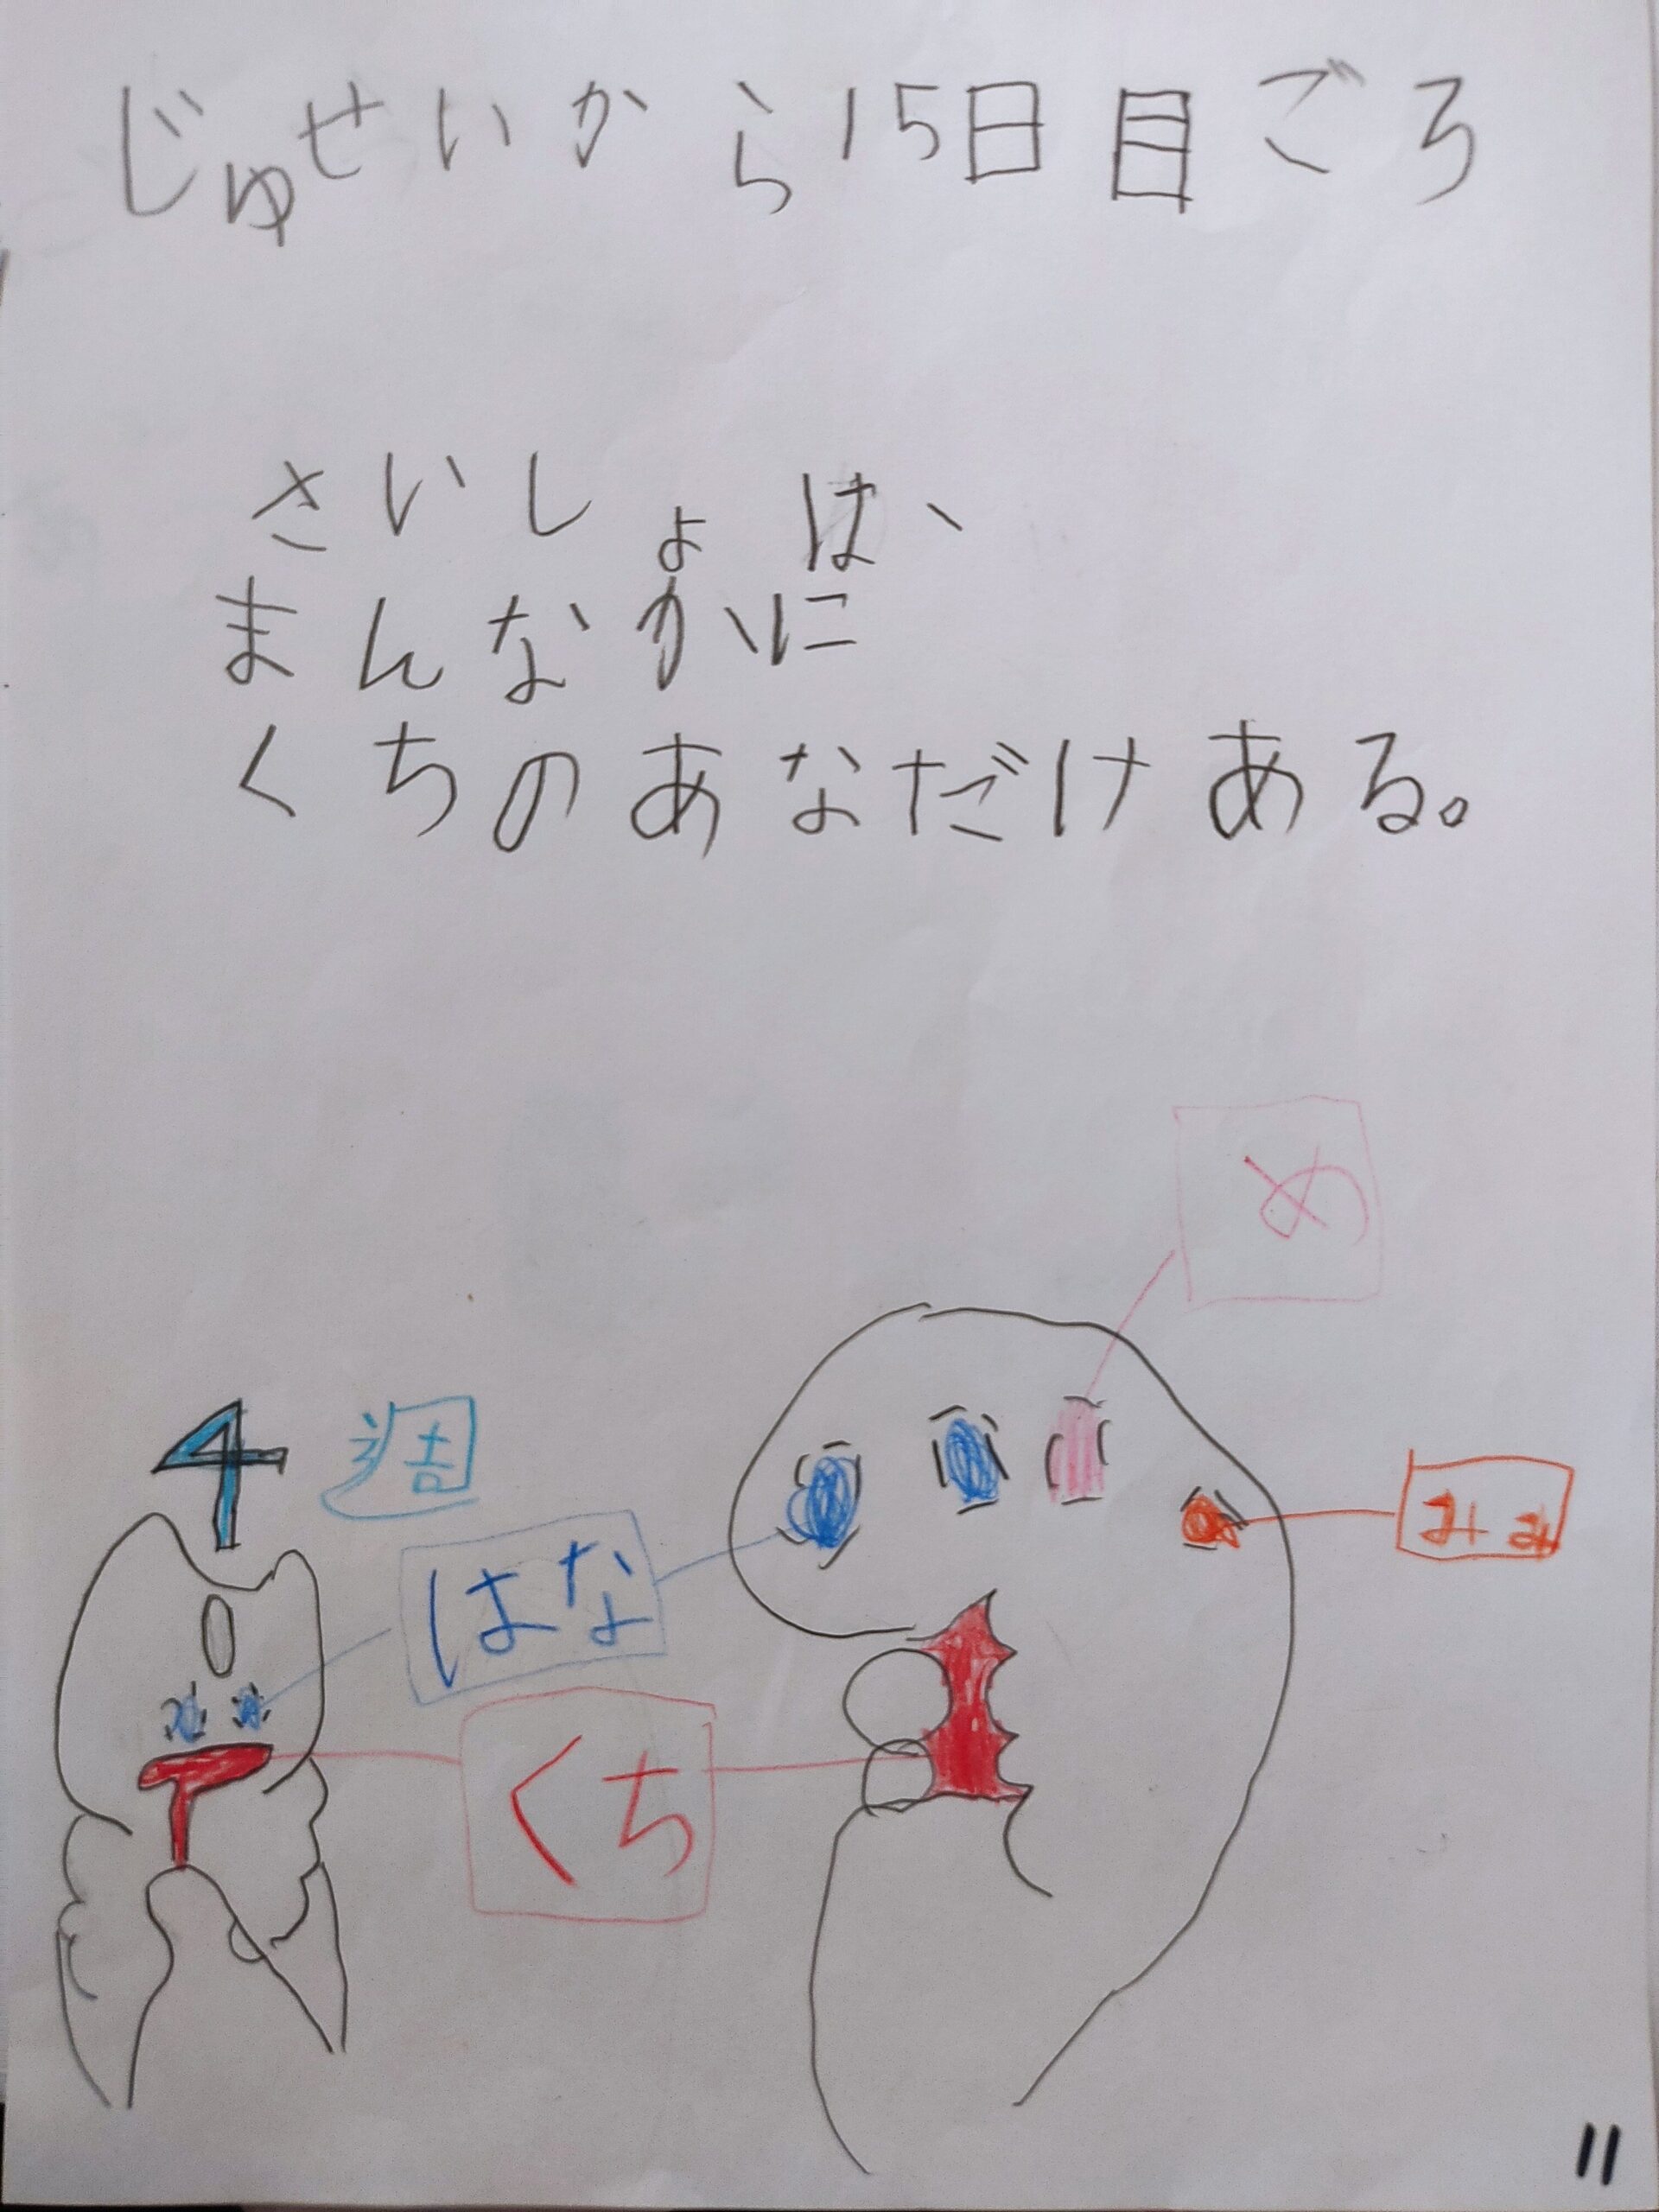 じゅせいから15日目ごろ
さいしょは、
まんなかに
くちのあなだけある。
め
4週
はな
みみ
くち
11